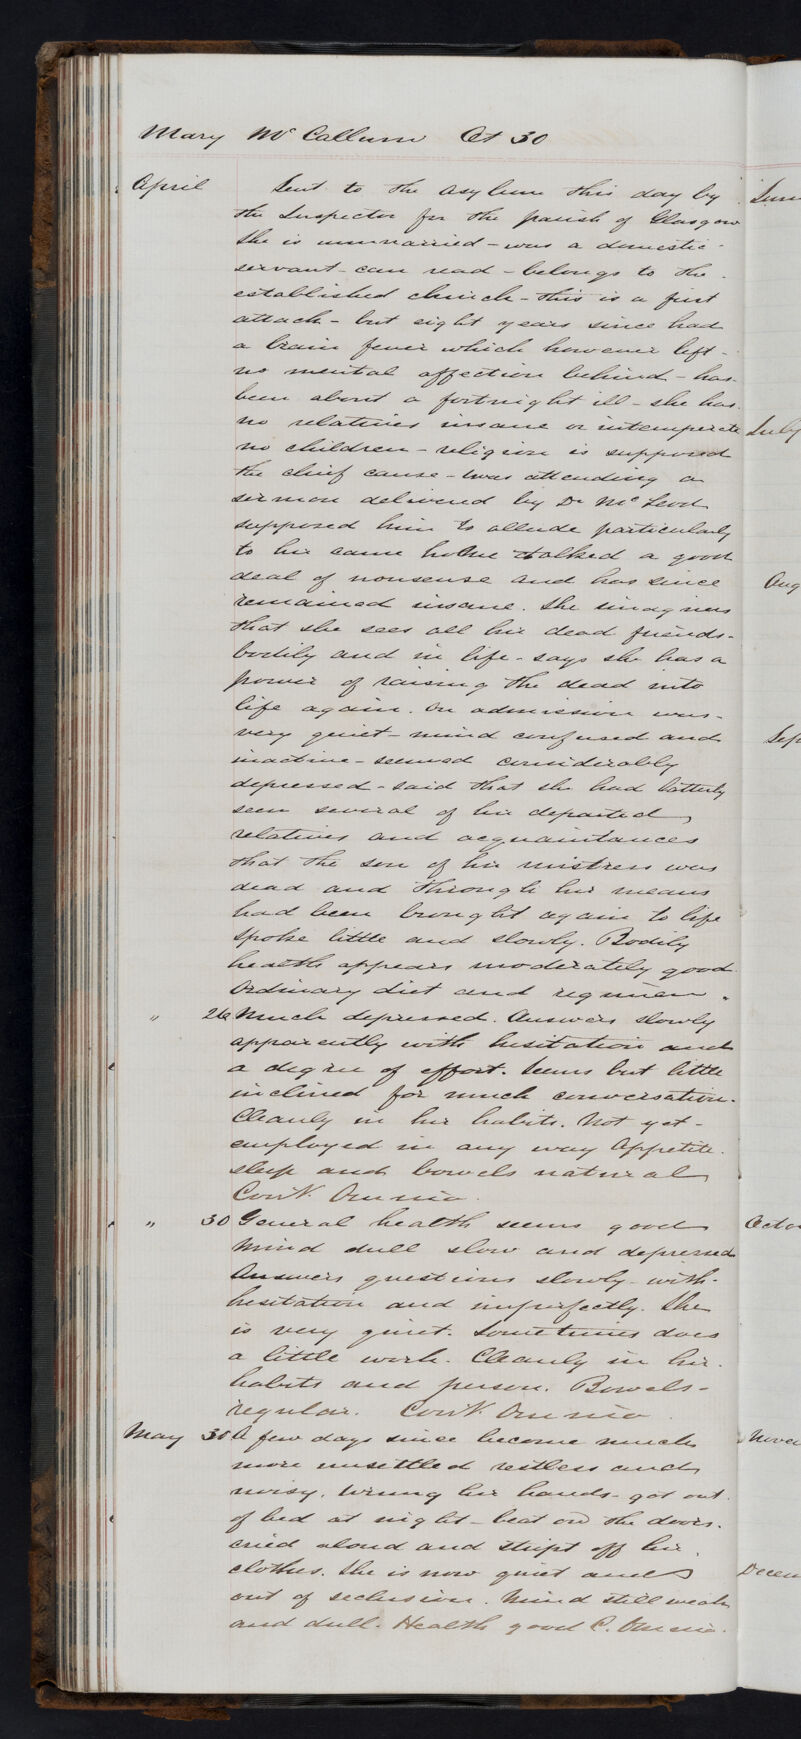 Mary Mc Callum Æt 30
April Sent to the Asylum this day by
the Inspector for the parish of Glasgow
She is unmarried - was a domestic
servant - can read - belongs to the
established church - this is a first
attack - but eight years since had
a brain fever which however left
no mental affection behind - has
been about a fortnight ill - she has
no relatives insane or intemperate
no children - religion is supposed
the chief cause - was attending a
sermon delivered by Dr McLeod
supposed him to allude particularly
to her came home & talked a good
deal of nonsense and has since
remained insane. She imagines
that she sees all her dead friends
bodily and in life - says she has a
power of raising the dead into
life again. On admission was
very quiet - mind confused and
inactive - seemed considerably
depressed - said that she had latterly
seen several of her departed
relatives and acquaintances
that the son of her mistress was
dead and through her means
had been brought again to life
Spoke little and slowly. Bodily
health appears moderately good
Ordinary diet and regimen.
" 26 Much depressed. Answers slowly
apparently with hesitation and
a degree of effort. Seems but little
inclined for much conversation.
Cleanly in her habits. Not yet
employed in any way Appetite
sleep and bowels natural
Contr. Omnia.
" 30 General health seems good
Mind dull slow and depressed
Answers questions slowly - with
hesitation and imperfectly. She
is very quiet. Sometimes does
a little work. Cleanly in her
habits and person. Bowels
regular. Contr. Omnia
May 30 A few days since become much
more unsettled restless and
noisy. Wrung her hands - got out
of bed at night - beat on the doors.
cried aloud and stript off her
clothes. She is now quiet and
out of seclusion. Mind still weak
and dull. Health good C. Omnia.
July
Aug
Sep
Octo
Nove
Decem